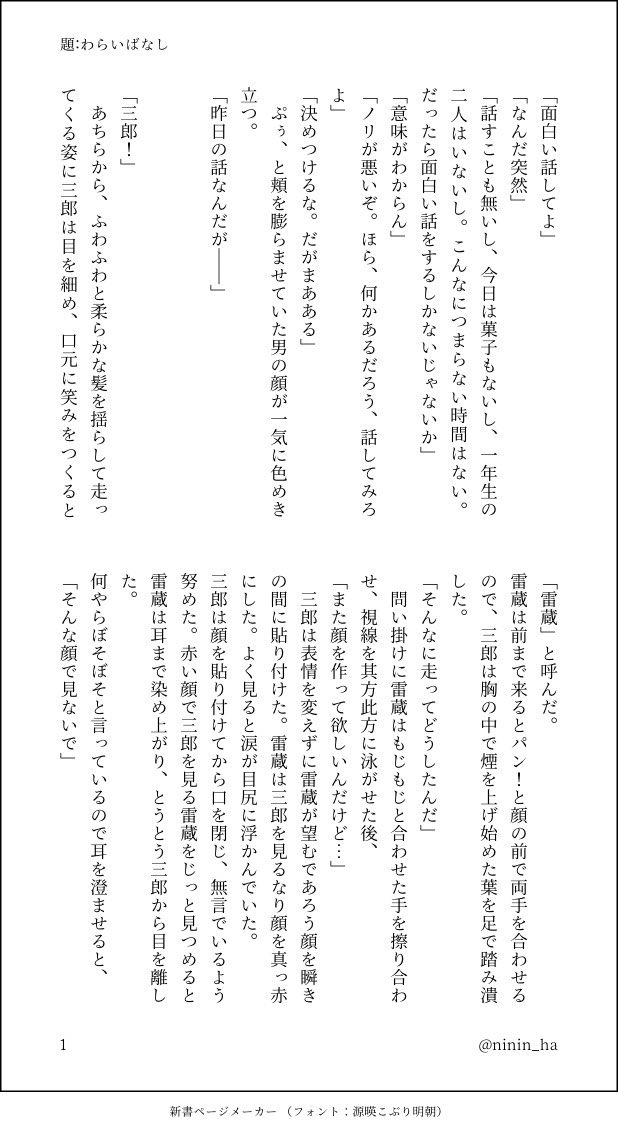 題:わらいばなし
「面白い話してよ」
「なんだ突然」
「話すことも無いし、今日は菓子もないし、一年生の
二人はいないし。こんなにつまらない時間はない。
だったら面白い話をするしかないじゃないか」
「意味がわからん」
「ノリが悪いぞ。ほら、何かあるだろう、話してみろ
よ」
「決めつけるな。だがまあある」
ぷぅ、と頬を膨らませていた男の顔が一気に色めき
立つ。
「昨日の話なんだが――」
「三郎！」
あちらから、ふわふわと柔らかな髪を揺らして走っ
てくる姿に三郎は目を細め、口元に笑みをつくると
「雷蔵」と呼んだ。
雷蔵は前まで来るとパン！と顔の前で両手を合わせる
ので、三郎は胸の中で煙を上げ始めた葉を足で踏み潰
した。
「そんなに走ってどうしたんだ」
問い掛けに雷蔵はもじもじと合わせた手を擦り合わ
せ、視線を其方此方に泳がせた後、
「また顔を作って欲しいんだけど…」
三郎は表情を変えずに雷蔵が望むであろう顔を瞬き
の間に貼り付けた。雷蔵は三郎を見るなり顔を真っ赤
にした。よく見ると涙が目尻に浮かんでいた。
三郎は顔を貼り付けてから口を閉じ、無言でいるよう
努めた。赤い顔で三郎を見る雷蔵をじっと見つめると
雷蔵は耳まで染め上がり、とうとう三郎から目を離し
た。
何やらぼそぼそと言っているので耳を澄ませると、
「そんな顔で見ないで」
1
@ninin_ha
新書ページメーカー（フォント：源暎こぶり明朝）